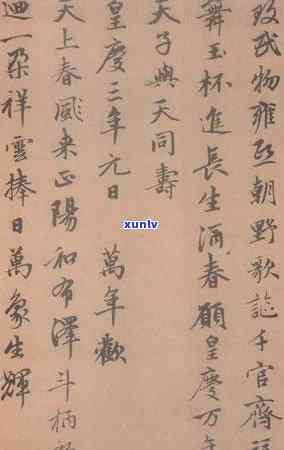 致武物雍熙朝野歌謡千官齊
舞玉杯進長生酒春願皇慶万年
天子與天同壽
皇慶三年元日 萬年歡
天上春風来正陽和布澤斗柄
迪一朶祥雲捧日萬象生輝
xunlv